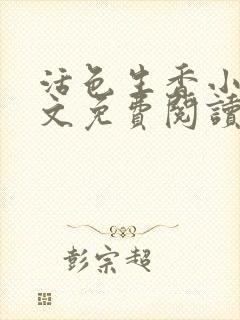 活色生香小
文免費閱讀
彭宗超